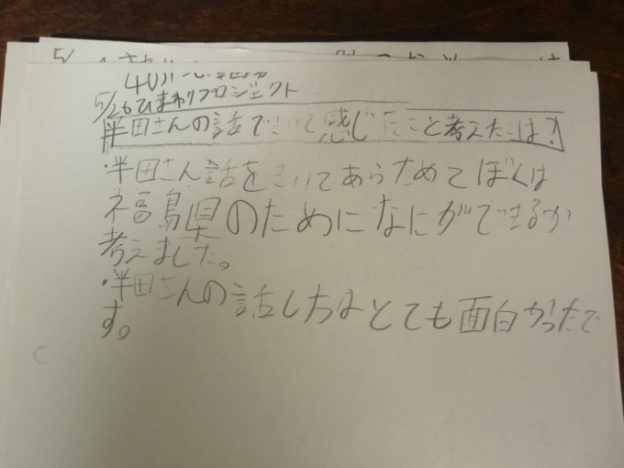 5/26 ひまわりプロジェクト
半田さんの話をきいて感じたこと考えたことは?
・半田さん話をきいてあらためてぼくは
福島県のためになにができるか
考えました。
・半田さんの話しはとても面白かったで
す。